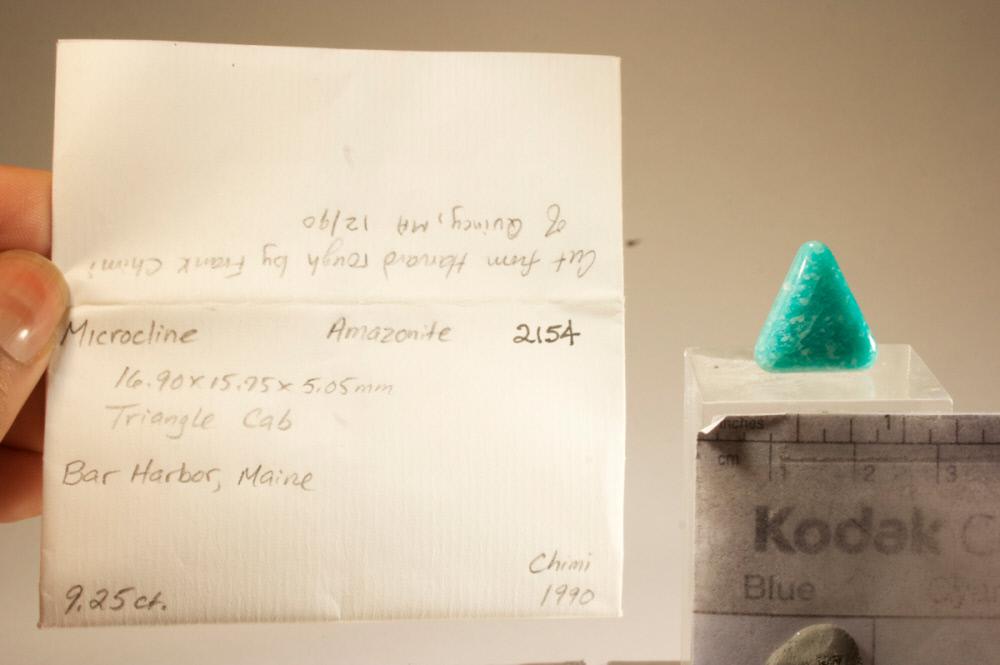 Cut from Harvard rough by Frank Chimi
of Quincy, MA 12/90
Microcline Amazonite 2154
16.90 x 15.75 x 5.05mm
Triangle Cab
Bar Harbor, Maine
Chimi
9.25ct. 1990
inches 1
cm 1 2 3
Kodak C
Blue Cya